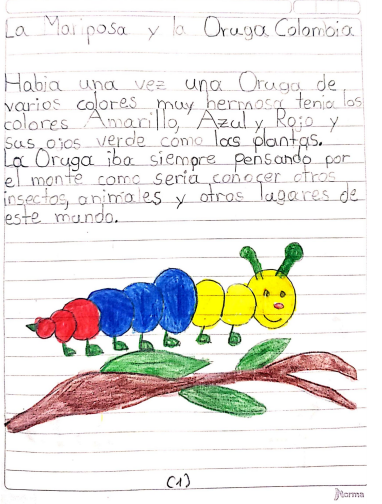 La Mariposa y la Oruga Colombia
Habia una vez una Oruga de
varios colores muy hermosa tenia los
colores Amarillo, Azul y Rojo y
sus ojos verde como las plantas.
La Oruga iba siempre pensando por
el monte como seria conocer otros
insectos, animales y otros lugares de
este mundo.
(1)
Norma